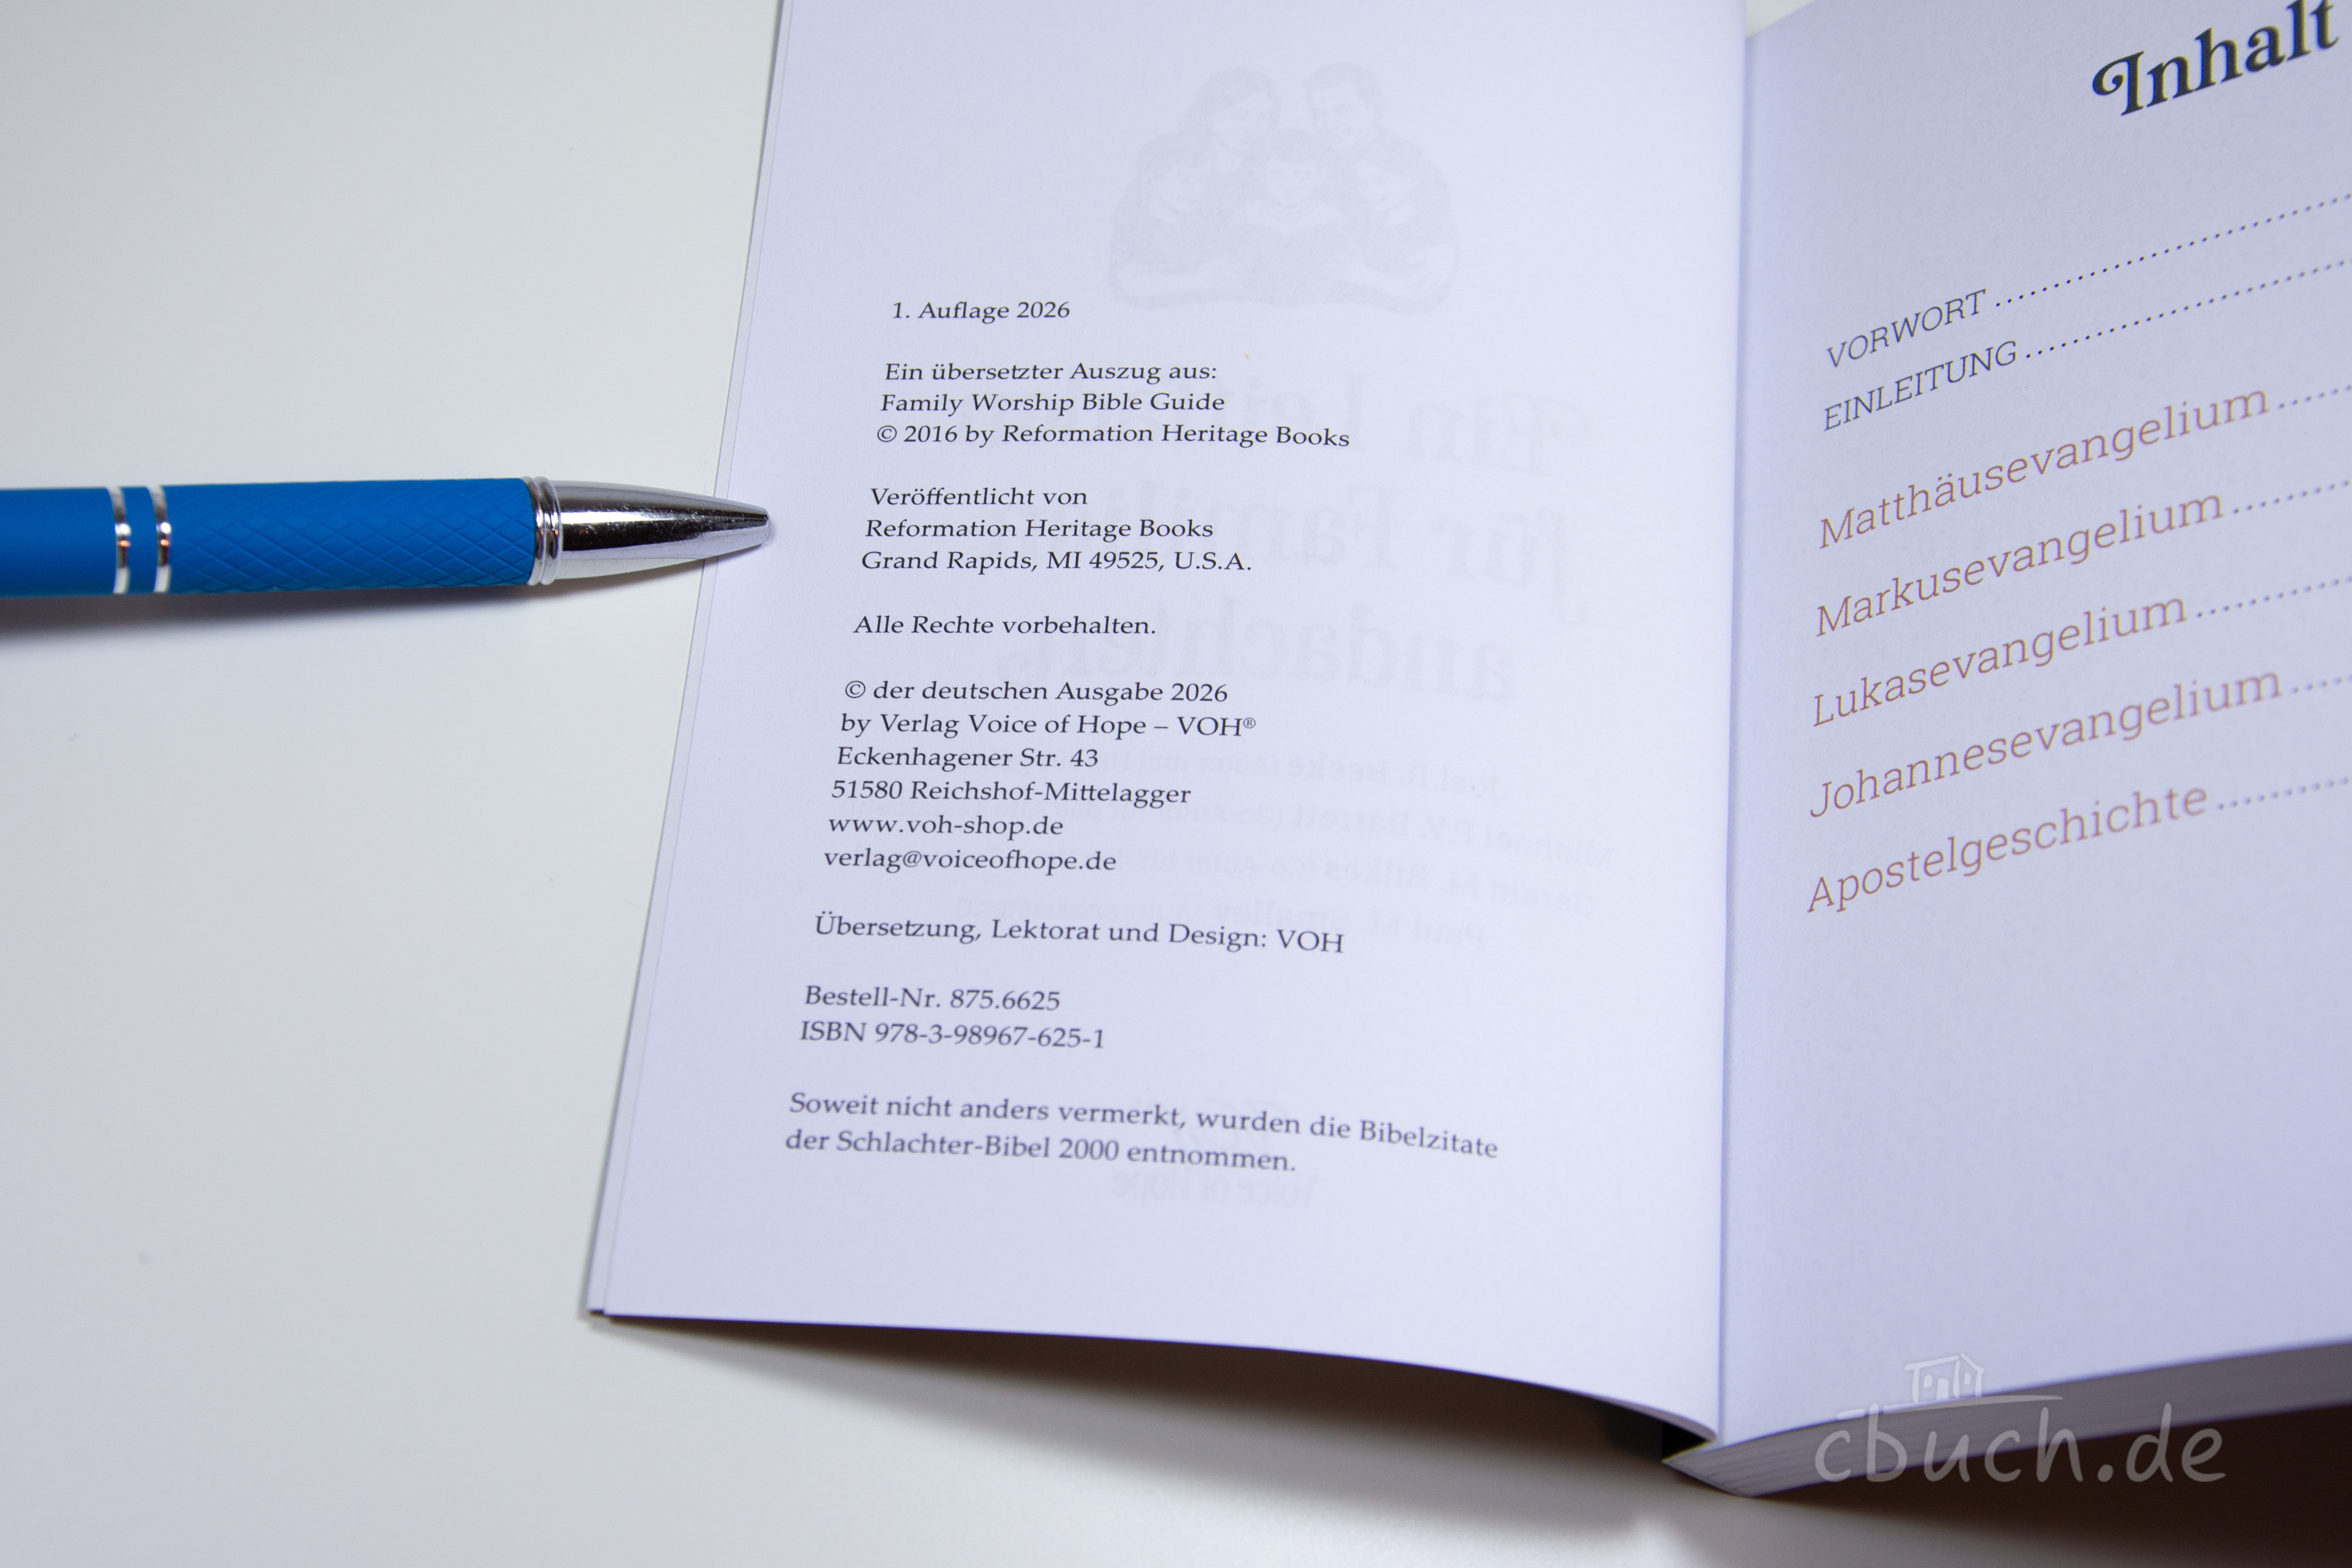 1. Auflage 2026
Ein übersetzter Auszug aus:
Family Worship Bible Guide
© 2016 by Reformation Heritage Books
Veröffentlicht von
Reformation Heritage Books
Grand Rapids, MI 49525, U.S.A.
Alle Rechte vorbehalten.
© der deutschen Ausgabe 2026
by Verlag Voice of Hope – VOH®
Eckenhagener Str. 43
51580 Reichshof-Mittelagger
www.voh-shop.de
verlag@voiceofhope.de
Übersetzung, Lektorat und Design: VOH
Bestell-Nr. 875.6625
ISBN 978-3-98967-625-1
Soweit nicht anders vermerkt, wurden die Bibelzitate
der Schlachter-Bibel 2000 entnommen.
Inhalt
VORWORT
EINLEITUNG
Matthäusevangelium
Markusevangelium
Lukasevangelium
Johannesevangelium
Apostelgeschichte
cbuch.de